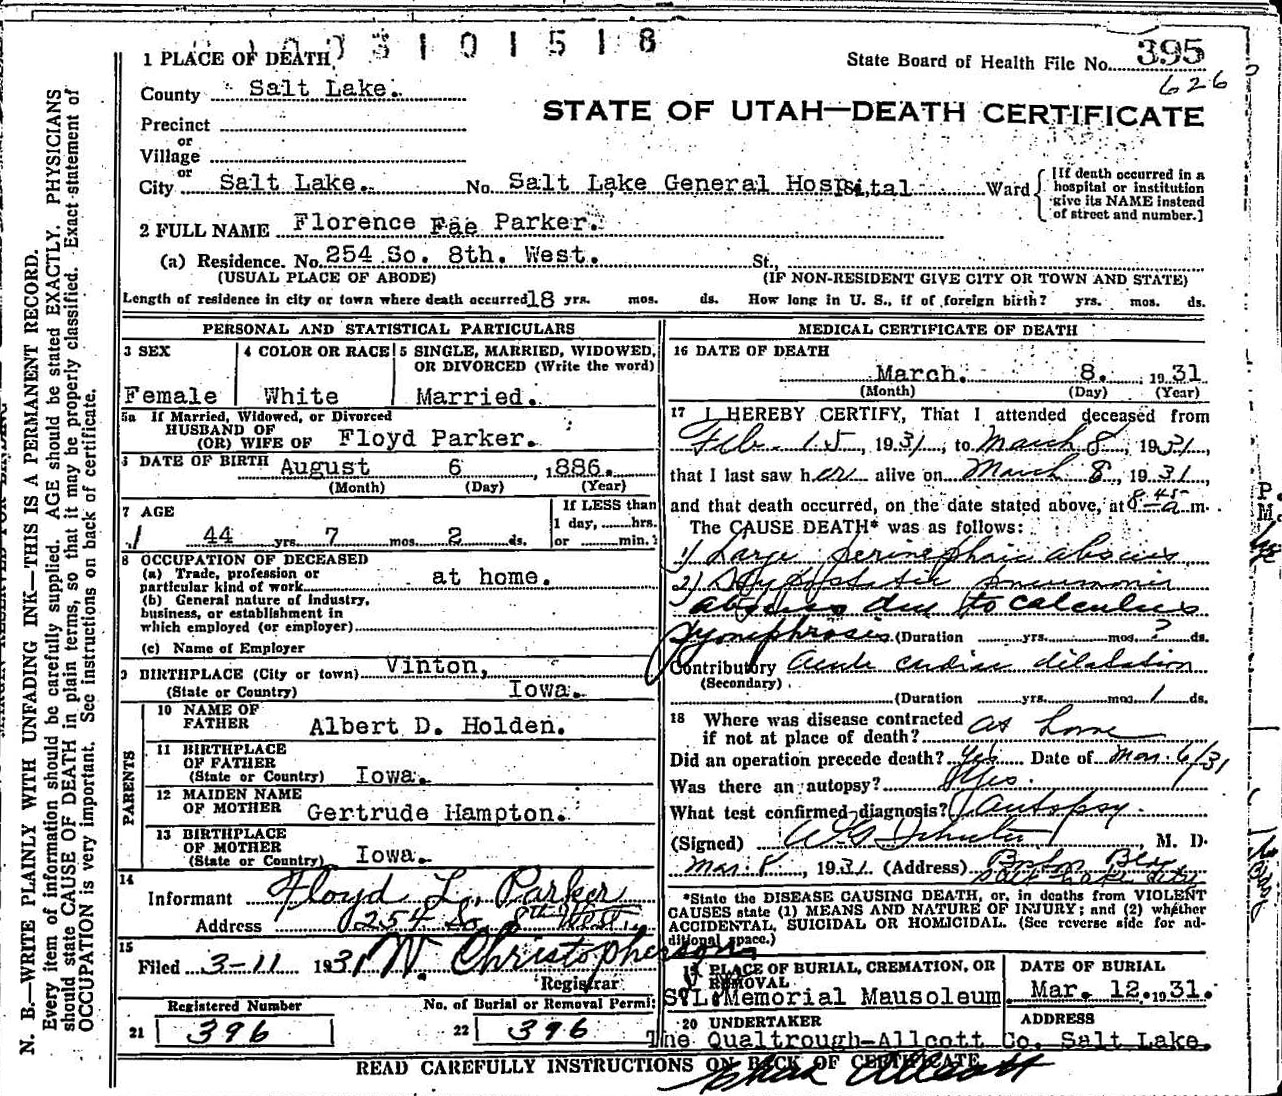 1003101518
1 PLACE OF DEATH
State Board of Health File No. 395
626
County Salt Lake.
STATE OF UTAH—DEATH CERTIFICATE
Precinct
or
Village
or
City Salt Lake. No. Salt Lake General Hospital Ward
[If death occurred in a
hospital or institution
give its NAME instead
of street and number.]
2 FULL NAME Florence Fae Parker.
(a) Residence. No. 254 So. 8th. West. St.,
(USUAL PLACE OF ABODE) (IF NON-RESIDENT GIVE CITY OR TOWN AND STATE)
Length of residence in city or town where death occurred 18 yrs. mos. ds. How long in U. S., if of foreign birth? yrs. mos. ds.
PERSONAL AND STATISTICAL PARTICULARS
3 SEX 4 COLOR OR RACE 5 SINGLE, MARRIED, WIDOWED,
OR DIVORCED (Write the word)
Female White Married.
5a If Married, Widowed, or Divorced
HUSBAND OF
(OR) WIFE OF Floyd Parker.
6 DATE OF BIRTH August 6 ,1886.
(Month) (Day) (Year)
7 AGE If LESS than
1 day, hrs.
44 yrs. 7 mos. 2 ds. or min.
8 OCCUPATION OF DECEASED
(a) Trade, profession or
particular kind of work at home.
(b) General nature of industry,
business, or establishment in
which employed (or employer)
(c) Name of Employer
9 BIRTHPLACE (City or town) Vinton,
(State or Country) Iowa.
PARENTS
10 NAME OF
FATHER Albert D. Holden.
11 BIRTHPLACE
OF FATHER
(State or Country) Iowa.
12 MAIDEN NAME
OF MOTHER Gertrude Hampton.
13 BIRTHPLACE
OF MOTHER
(State or Country) Iowa.
14
Informant Floyd L. Parker
Address 254 So 8th West.
15
Filed 3-11 1931 W. Christopherson
Registrar
Registered Number No. of Burial or Removal Permit
21 396 22 396
MEDICAL CERTIFICATE OF DEATH
16 DATE OF DEATH
March. 8. 1931
(Month) (Day) (Year)
17 I HEREBY CERTIFY, That I attended deceased from
Feb. 15, 1931, to March 8, 1931,
that I last saw her alive on March 8, 1931,
and that death occurred, on the date stated above, at 8 45 a m.
The CAUSE DEATH* was as follows:
1) Large perinephric abscess
2) Hypostatic pneumonia
abscess due to calculus
pyonephrosis (Duration yrs. mos. ? ds.
Contributory Acute cardiac dilatation
(Secondary)
(Duration yrs. mos. 1 ds.
18 Where was disease contracted
if not at place of death? At home
Did an operation precede death? Yes Date of Mar. 6/31
Was there an autopsy? Yes.
What test confirmed diagnosis? Autopsy.
(Signed) M. D.
Mar. 8, 1931. (Address) Boston Bldg.
Salt Lake City
*State the DISEASE CAUSING DEATH, or, in deaths from VIOLENT
CAUSES state (1) MEANS AND NATURE OF INJURY; and (2) whether
ACCIDENTAL, SUICIDAL OR HOMICIDAL. (See reverse side for ad-
ditional space.)
19 PLACE OF BURIAL, CREMATION, OR
REMOVAL
S.L. Memorial Mausoleum.
DATE OF BURIAL
Mar. 12. 1931.
20 UNDERTAKER ADDRESS
The Qualtrough-Allcott Co. Salt Lake.
READ CAREFULLY INSTRUCTIONS ON BACK OF CERTIFICATE
Allcott
N. B.—WRITE PLAINLY WITH UNFADING INK—THIS IS A PERMANENT RECORD.
Every item of information should be carefully supplied. AGE should be stated EXACTLY. PHYSICIANS
should state CAUSE OF DEATH in plain terms, so that it may be properly classified. Exact statement of
OCCUPATION is very important. See instructions on back of certificate.
P.
M.